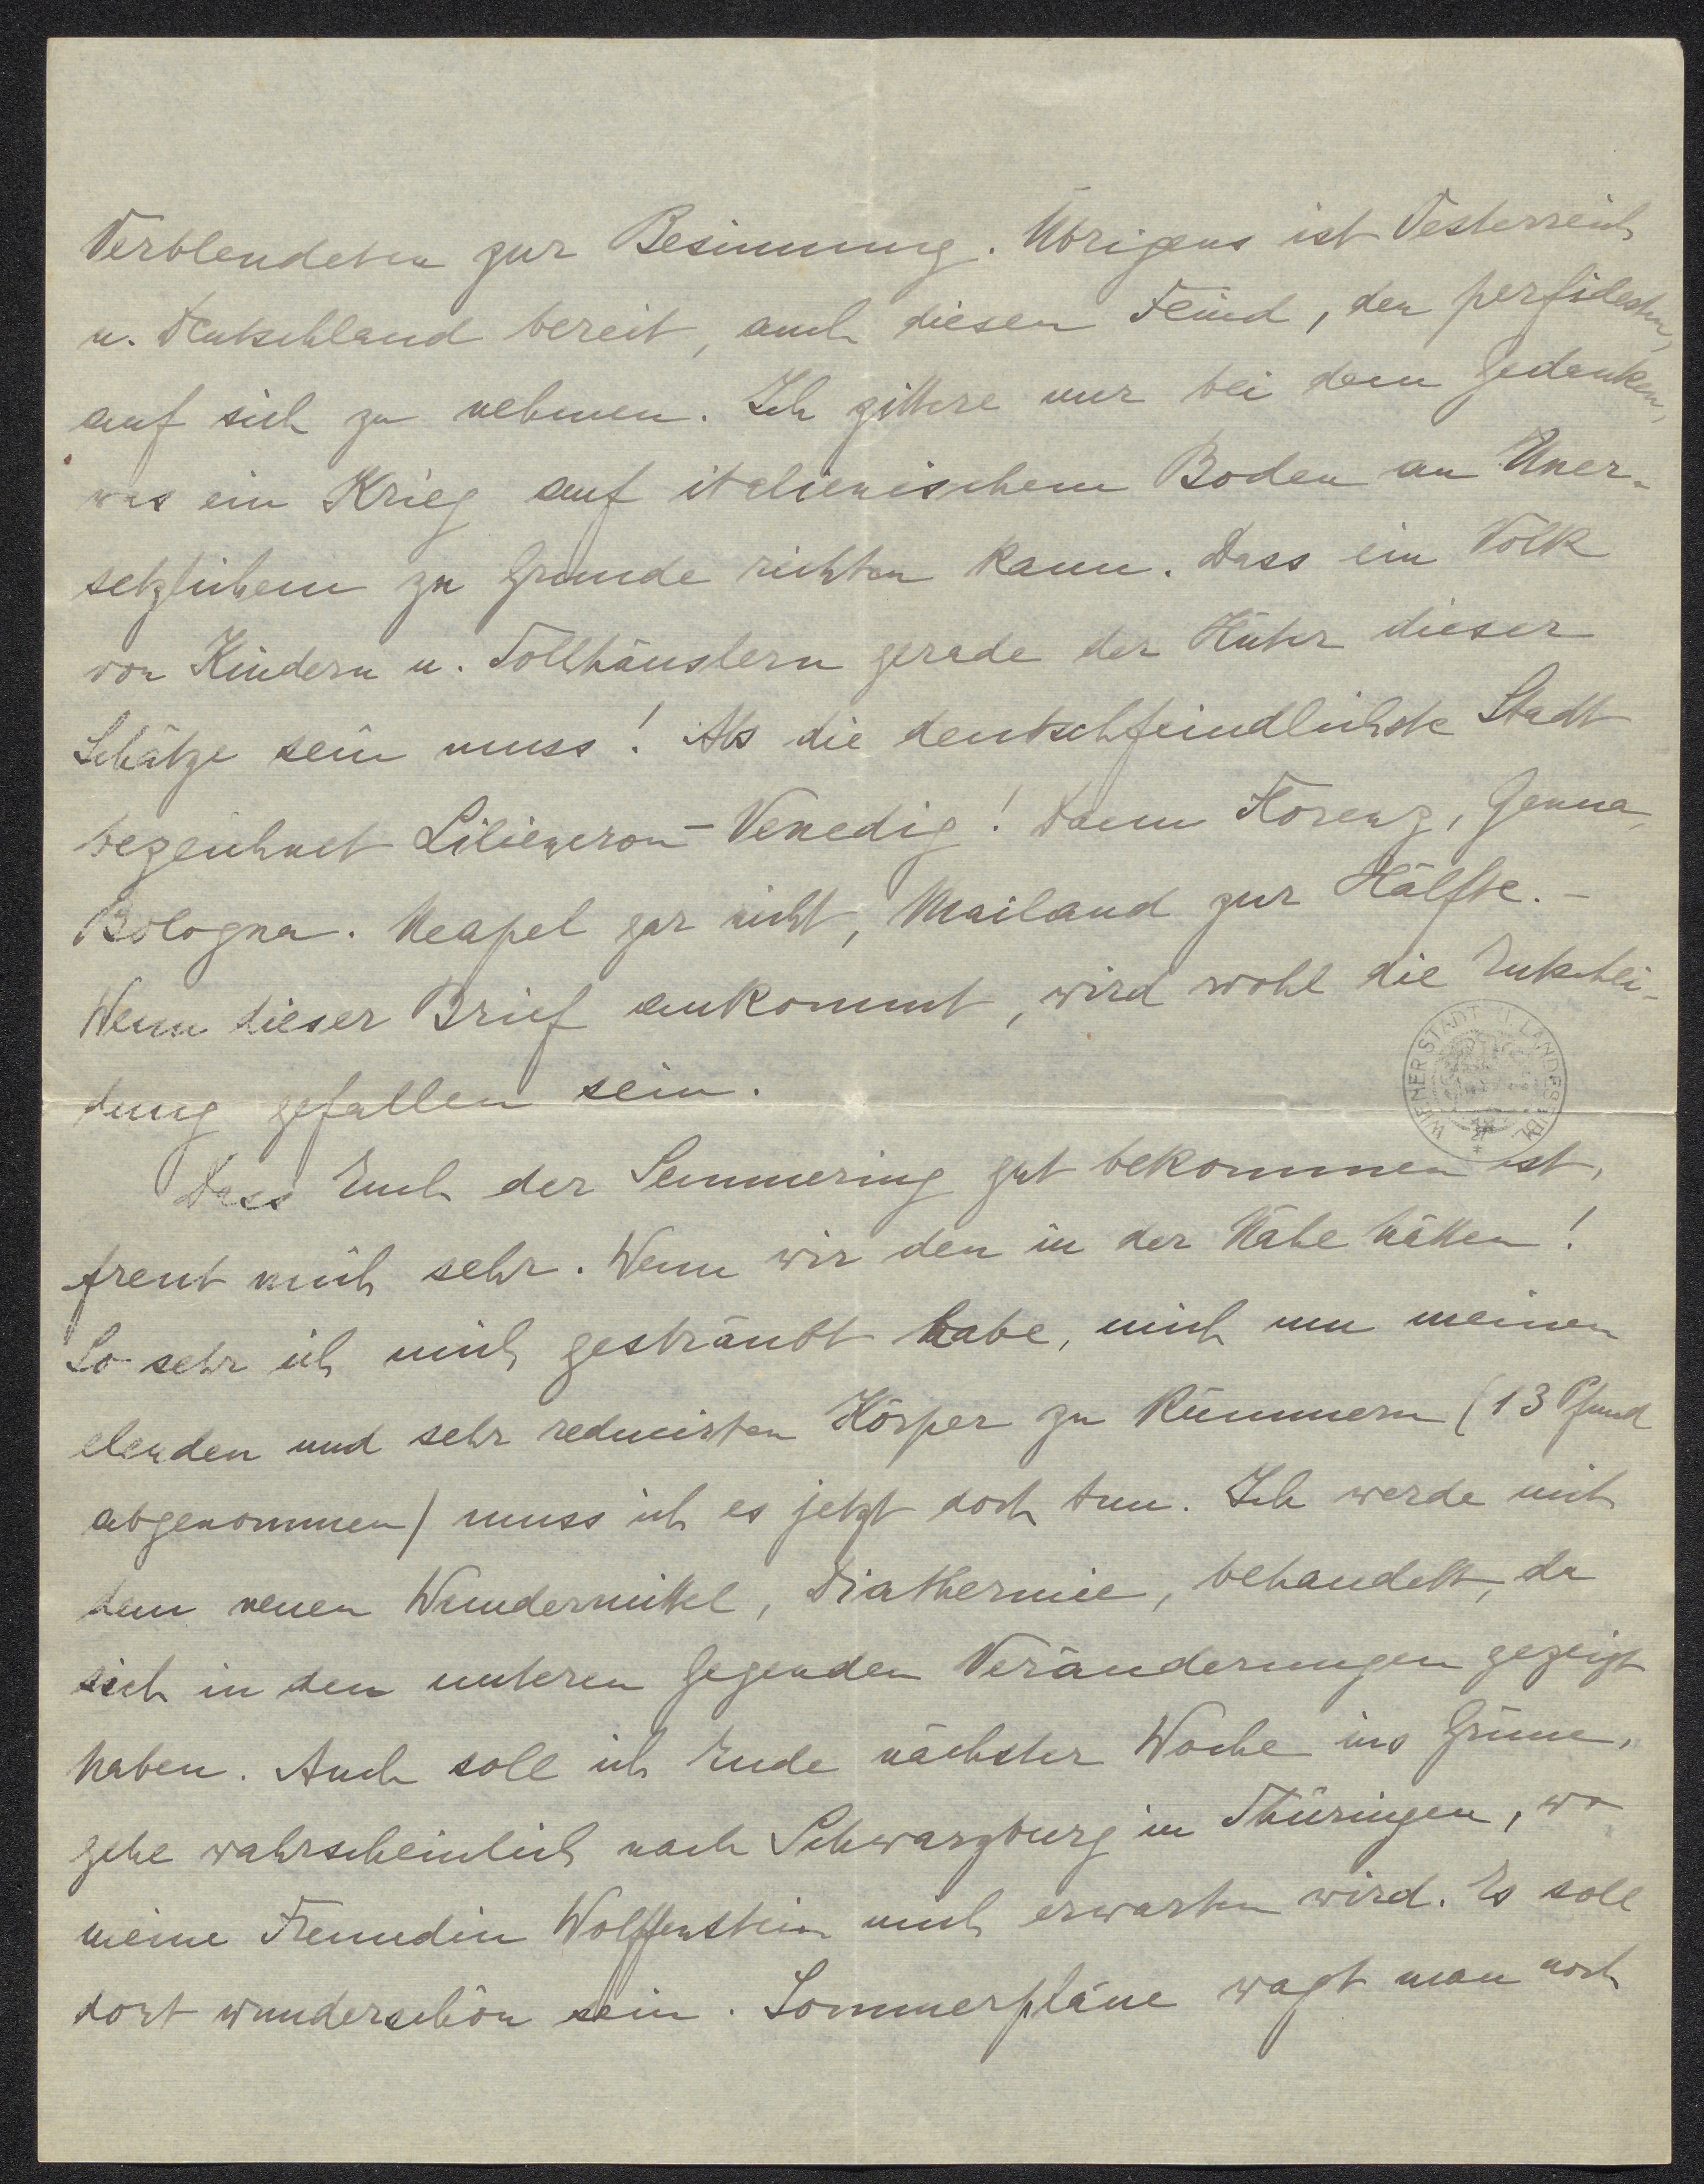 Verblendeten zur Besinnung. Übrigens ist Oesterreich
u. Deutschland bereit, auch diesen Feind, den perfidesten,
auf sich zu nehmen. Ich zittere nur bei dem Gedanken,
was ein Krieg auf italienischem Boden an Uner-
setzlichem zu Grunde richten kann. Dass ein Volk
von Kindern u. Tollhäuslern gerade der Hüter dieser
Schätze sein muss! Als die deutschfeindlichste Stadt
bezeichnet Liliencron - Venedig! Dann Florenz, Genua,
Bologna. Neapel gar nicht, Mailand zur Hälfte. -
Wenn dieser Brief ankommt, wird wohl die Entschei-
dung gefallen sein.
WIENER STADT U. LANDESBIBL.
Dass Euch der Semmering gut bekommen ist,
freut mich sehr. Wenn wir den in der Nähe hätten!
So sehr ich mich gesträubt habe, mich um meinen
elenden und sehr reduzirten Körper zu kümmern (13 Pfund
abgenommen) muss ich es jetzt doch tun. Ich werde mit
dem neuen Wundermittel, Diathermie, behandelt, da
sich in den unteren Gegenden Veränderungen gezeigt
haben. Auch soll ich Ende nächster Woche ins Grüne,
gehe wahrscheinlich nach Schwarzburg in Thüringen, wo
meine Freundin Wolffenstein mich erwarten wird. Es soll
dort wunderschön sein. Sommerpläne wagt man noch